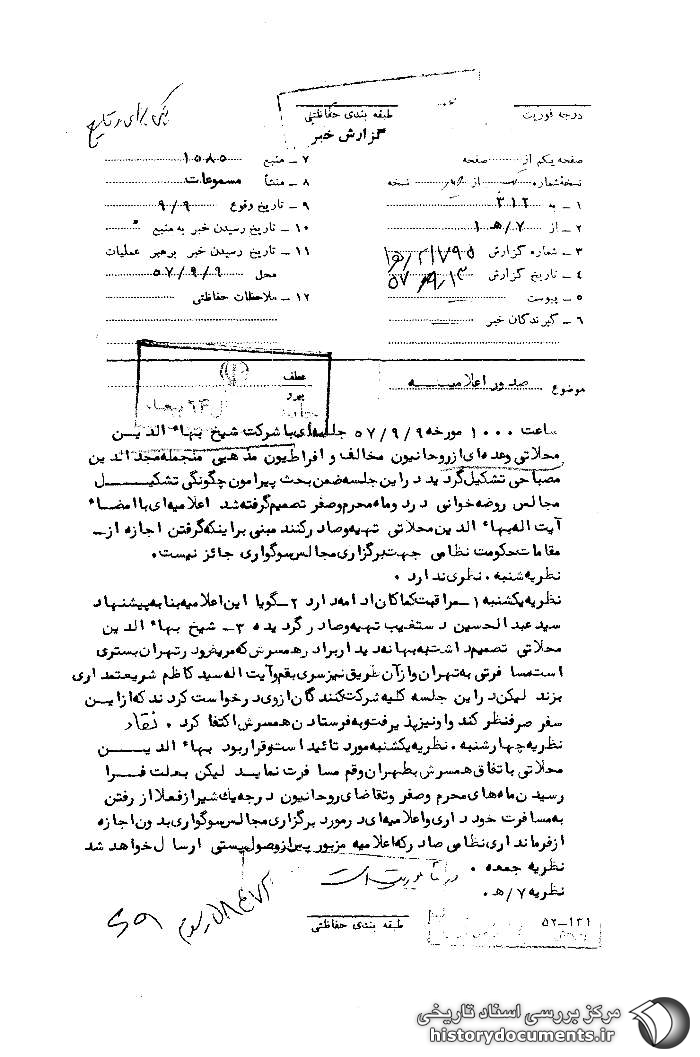 درجه فوریت
طبقه بندی حفاظتی
گزارش خبر
صفحه یکم از صفحه
نسخه شماره از نسخه
۱ ـ به ۳۱۲
۲ ـ از ۷ / هـ ۱
۳ ـ شماره گزارش
۴ ـ تاریخ گزارش
۵ ـ پیوست
۶ ـ گیرندگان خبر
۷ ـ منبع ۱۰۸۵
۸ ـ منشأ مسموعات
۹ ـ تاریخ وقوع ۹/۹
۱۰ ـ تاریخ رسیدن خبر به منبع
۱۱ ـ تاریخ رسیدن خبر برهبر عملیات
محل ۵۷/۹/۹
۱۲ ـ ملاحظات حفاظتی
عطف
پیرو
موضوع صدور اعلامیه
ساعت ۱۰۰۰ مورخه ۵۷/۹/۹ جلسه‌ای با شرکت شیخ بهاء الدین
محلاتی وعده‌ای از روحانیون مخالف و افراطیون مذهبی منجمله مجد الدین
مصباحی تشکیل گردید در این جلسه ضمن بحث پیرامون چگونگی تشکیل
مجالس روضه خوانی در دوماه محرم وصفر تصمیم گرفته شد اعلامیه‌ای با امضاء
آیت اله بهاء الدین محلاتی تهیه وصادر کنند مبنی بر اینکه گرفتن اجازه از ـ
مقامات حکومت نظامی جهت برگزاری مجالس سوگواری جائز نیست.
نظریه شنبه . نظری ندارد .
نظریه یکشنبه ۱ ـ مراقبت کماکان ادامه دارد ۲ ـ گویا این اعلامیه بنا به پیشنهاد
سید عبدالحسین دستغیب تهیه وصادر گردیده ۳ ـ شیخ بهاء الدین
محلاتی تصمیم داشت به بهانه دیدار برادر همسرش که مریض و در تهران بستری
است مسافرتی به تهران و از آن طریق نیز سری بقم وآیت اله سید کاظم شریعتمداری
بزند لیکن در این جلسه کلیه شرکت کنندگان از وی درخواست کردند که از این
سفر صرفنظر کند واو نیز پذیرفت و به فرستادن همسرش اکتفا کرد .
نظریه چهارشنبه . نظریه یکشنبه مورد تائید است وقرار بود بهاء الدین
محلاتی باتفاق همسرش بطهران وقم مسافرت نماید لیکن بعلت فرا
رسیدن ماه‌های محرم وصفر وتقاضای روحانیون درجه یک شیراز فعلا از رفتن
به مسافرت خودداری واعلامیه‌ای در مورد برگزاری مجالس سوگواری بدون اجازه
از فرمانداری نظامی صادر که اعلامیه مزبور پس از وصول پستی ارسال خواهد شد
نظریه جمعه .
نظریه ۷ / هـ .
طبقه بندی حفاظتی
۵۲ـ۱۳۱
مرکز بررسی اسناد تاریخی
historydocuments.ir